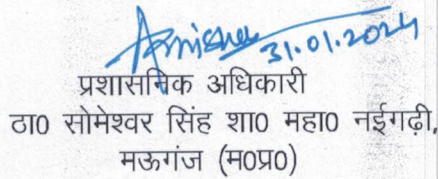 31.01.2024
प्रशासनिक अधिकारी
ठा0 सोमेश्वर सिंह शा0 महा0 नईगढ़ी,
मऊगंज (म0प्र0)